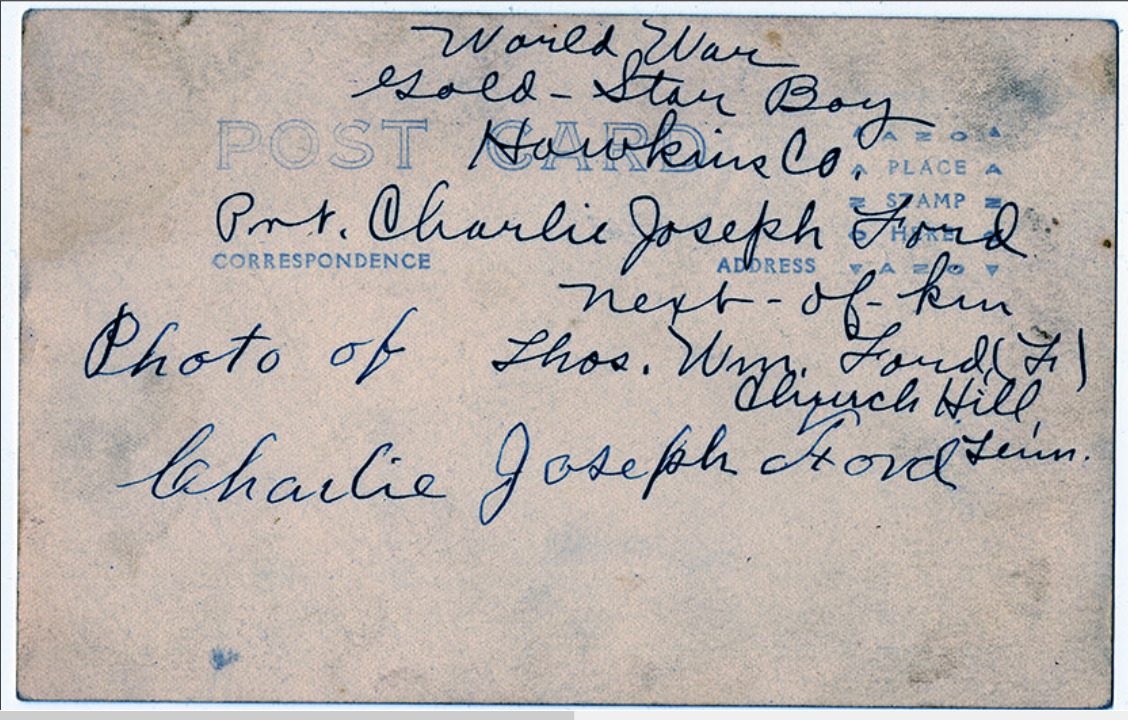 World War
Gold-Star Boy
POST CARD
Hawkins Co.
A Z O A
PLACE
STAMP
HERE
Pvt. Charlie Joseph Ford
CORRESPONDENCE
ADDRESS
AZO
next-of-kin
Photo of
Thos. Wm. Ford, (F)
Church Hill,
Tenn.
Charlie Joseph Ford